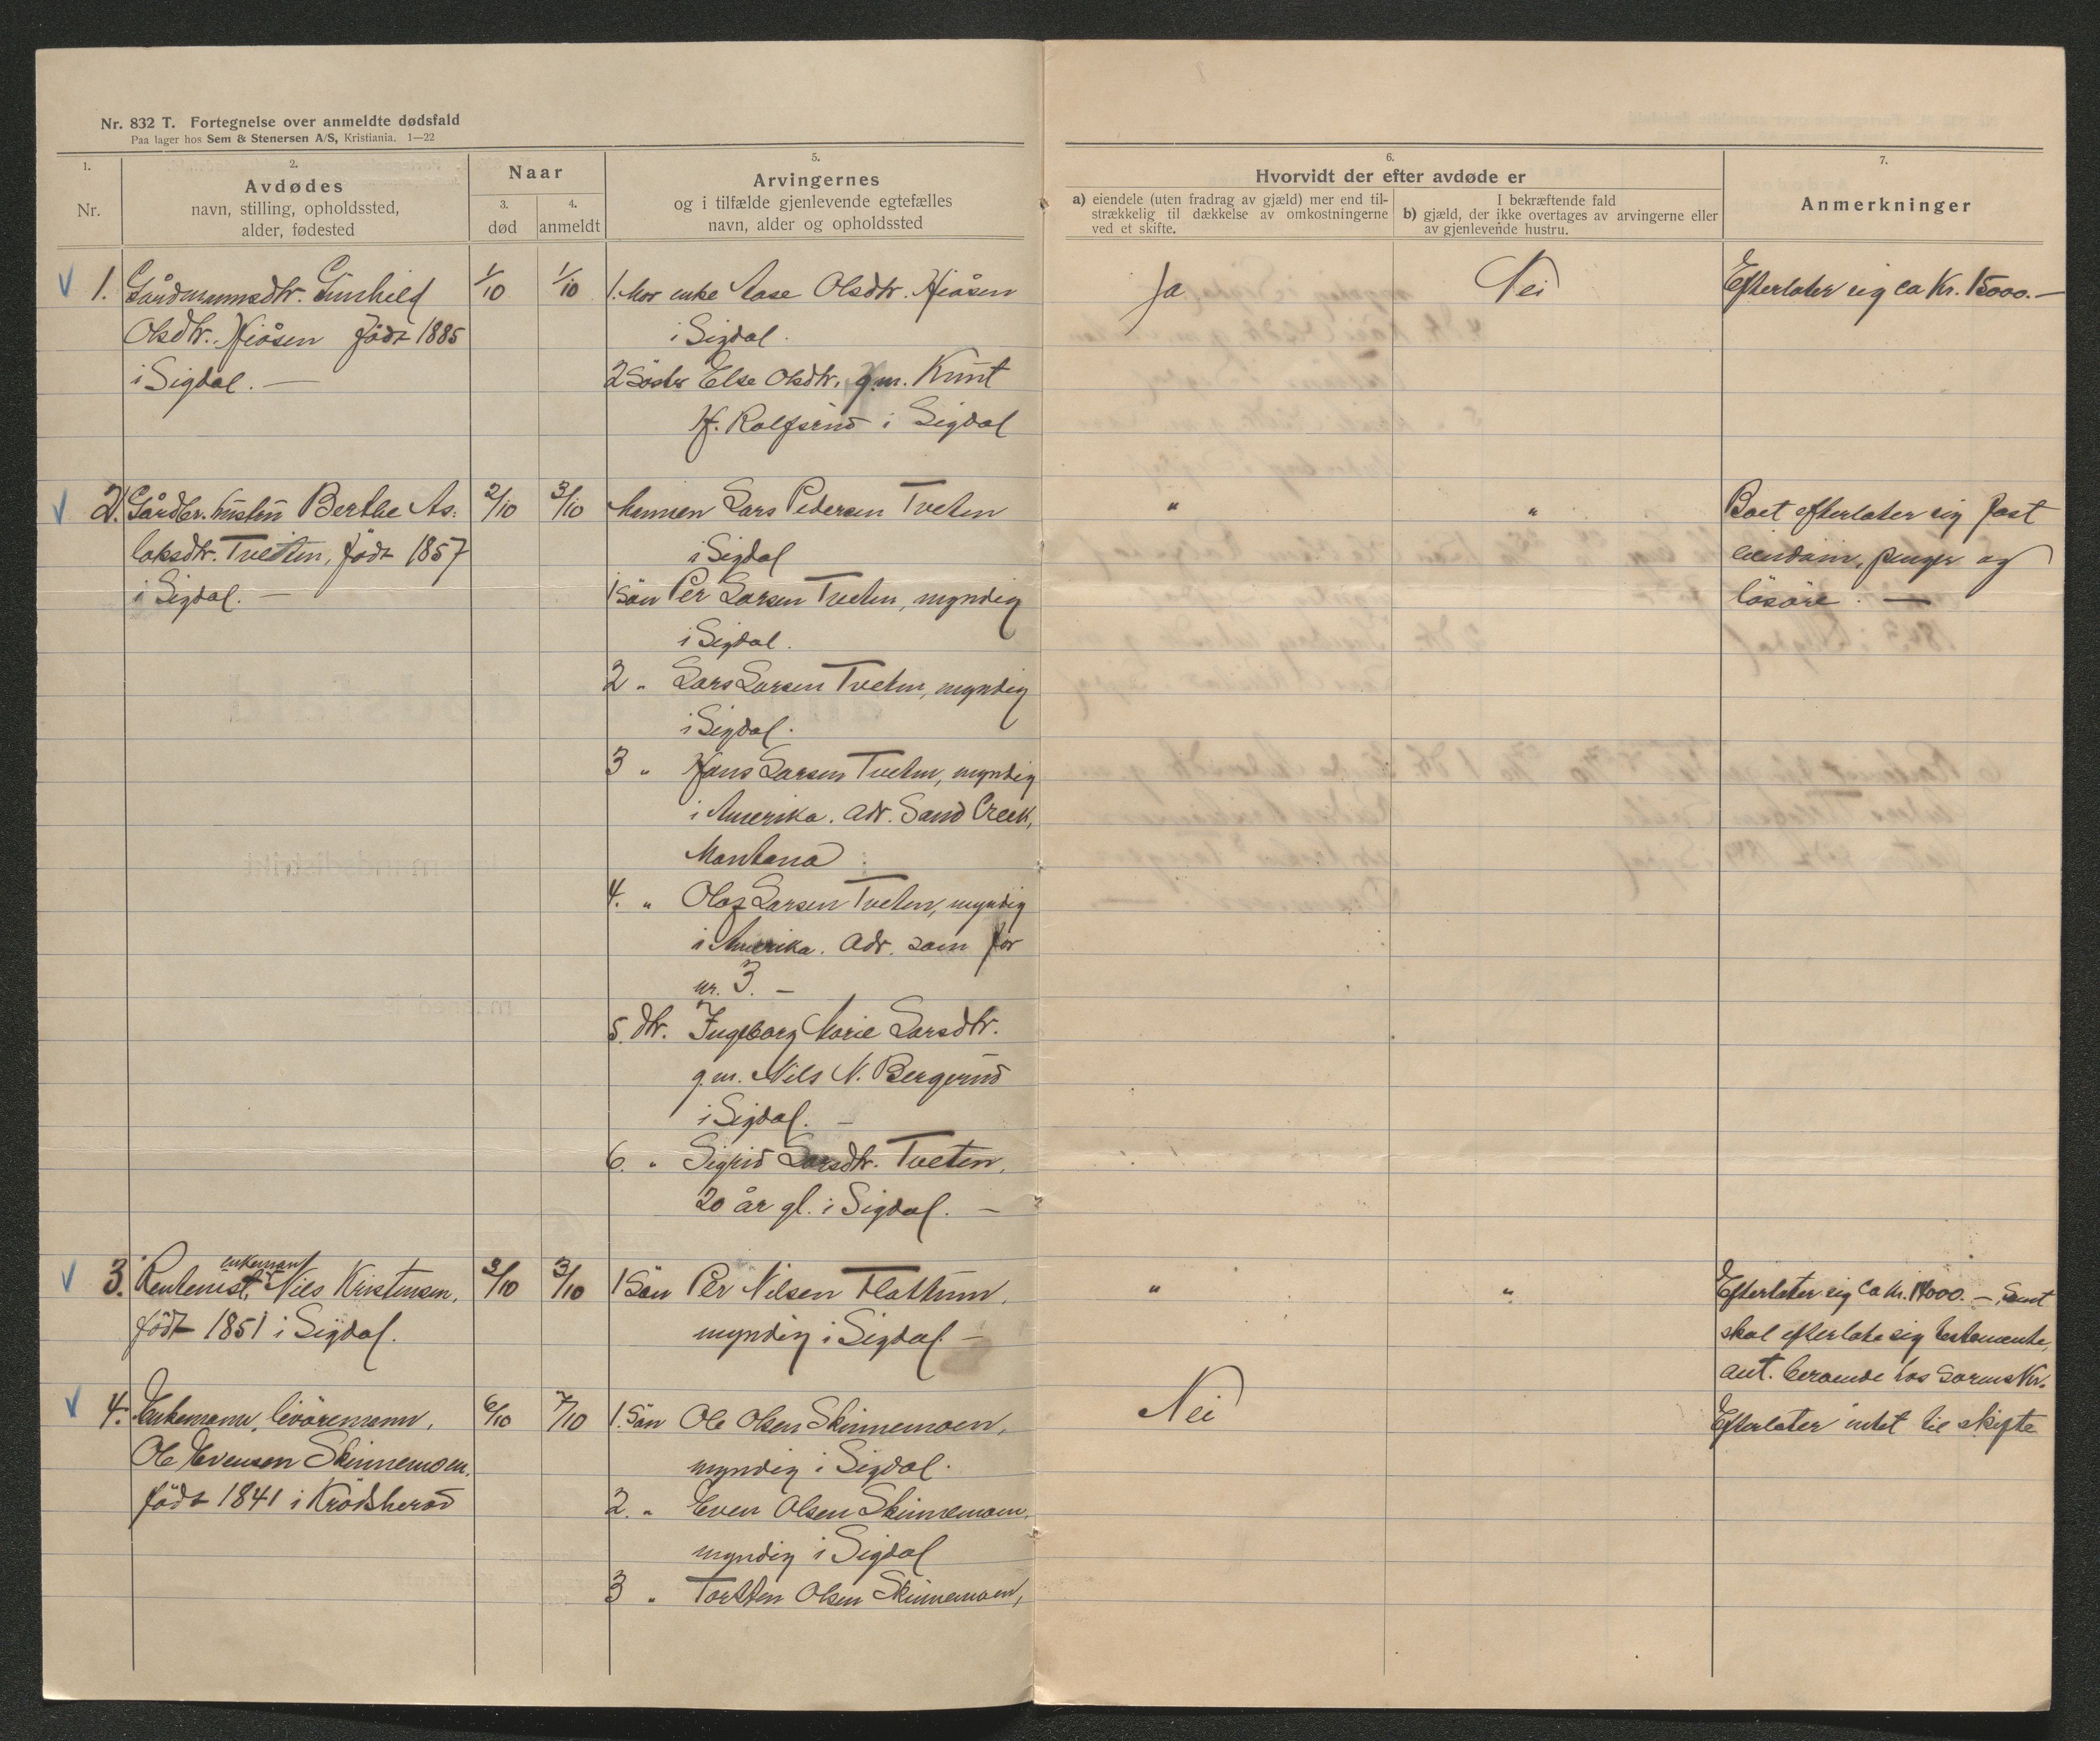 Nr. 832 T. Fortegnelse over anmeldte dødsfald
Paa lager hos Sem & Stenersen A/S, Kristiania. 1—22
1.
Nr.
2.
Avdødes
navn, stilling, opholdssted,
alder, fødested
Naar
3.
død
4.
anmeldt
5.
Arvingernes
og i tilfælde gjenlevende egtefælles
navn, alder og opholdssted
6.
Hvorvidt der efter avdøde er
a) eiendele (uten fradrag av gjæld) mer end til-
strækkelig til dækkelse av omkostningerne
ved et skifte.
I bekræftende fald
b) gjæld, der ikke overtages av arvingerne eller
av gjenlevende hustru.
7.
Anmerkninger
1. Gårdmannsdtr. Gunhild
Olsdtr. Hiåsen født 1885
i Sigdal. —
1/10
1/10
1. Mor enke Aase Olsdtr. Hiåsen
i Sigdal.
2 Søster Else Olsdtr. g.m. Knut
H. Rolfsrud i Sigdal
Ja
Nei
Efterlater sig ca Kr. 15000.—
2. Gårdbr. hustru Berthe As-
laksdtr. Tveiten, født 1857
i Sigdal. —
2/10
3/10
Mannen Lars Pedersen Tveten
i Sigdal
1 Søn Per Larsen Tveten, myndig
i Sigdal.
2 „ Lars Larsen Tveten, myndig
i Sigdal.
3 „ Hans Larsen Tveten, myndig
i Amerika. adr. Sand Creek,
Montana
4. „ Olaf Larsen Tveten, myndig
i Amerika. adr. som for
nr. 3. —
5. dtr. Ingeborg Marie Larsdtr.
g.m. Nils N. Bergerud
i Sigdal. —
6. „ Sigrid Larsdtr. Tveten,
20 år gl. i Sigdal. —
„
„
Boet efterlater sig fast
eiendom, penger og
løsøre. —
3. Rentenist, enkemand Nils Kristensen,
født 1851 i Sigdal.
3/10
3/10
1 Søn Per Nilsen Flattum,
myndig i Sigdal. —
„
„
Efterlater sig ca kr. 14000. — Samt
skal efterlate sig testamente,
ant. beroende hos
4. Enkemann, livøremann,
Ole Evensen Skinnemoen,
født 1841 i Krødsherad
6/10
7/10
1. Søn Ole Olsen Skinnemoen,
myndig i Sigdal.
2. „ Even Olsen Skinnemoen,
myndig i Sigdal
3 „ Torsten Olsen Skinnemoen,
Nei
Efterlater intet til skifte